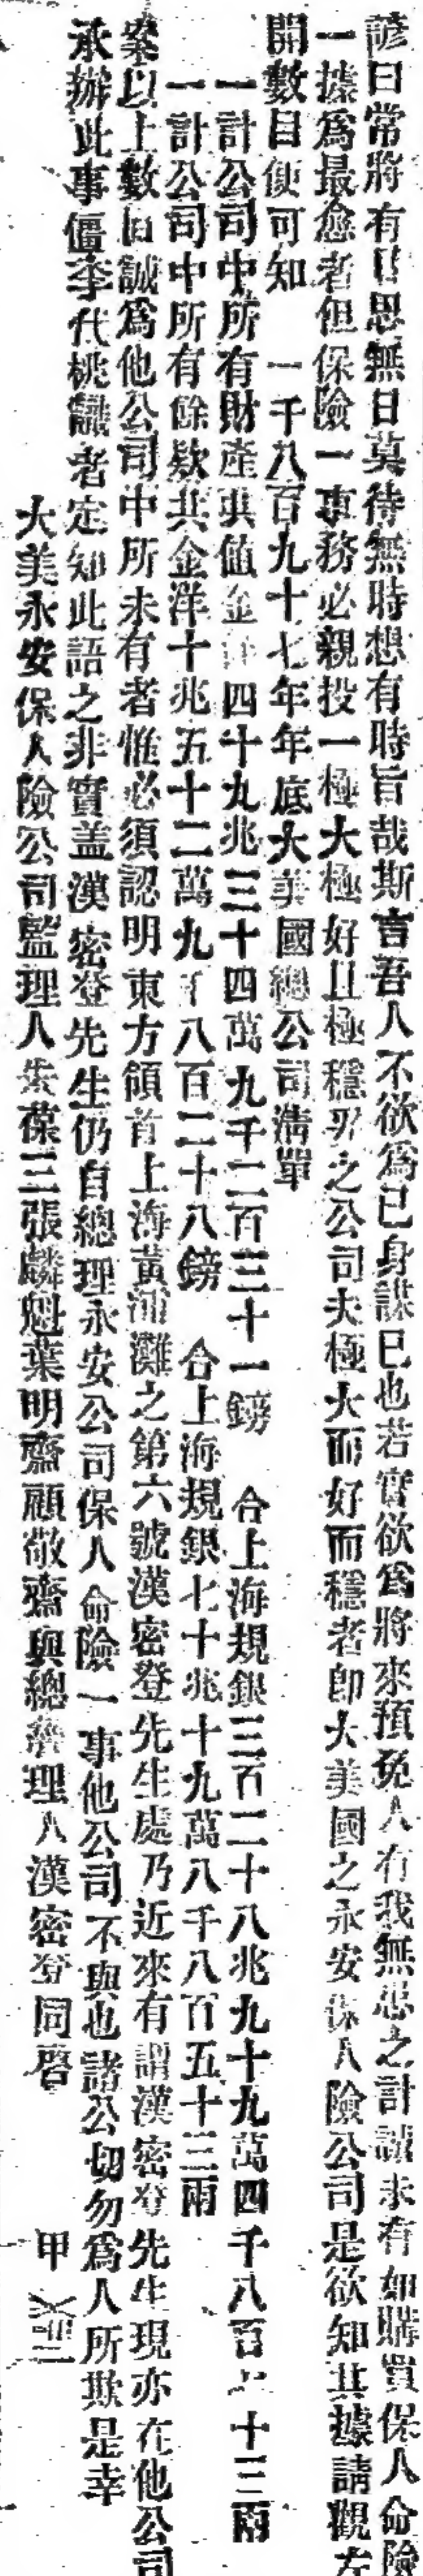 諺曰常將有日思無日莫待無時想有時旨哉斯言吾人不欲爲已身謀已也若實欲爲將來預免人有我無悲之計請未有如購買保人命險
一據爲最愈者但保險一事務必親投一極大極好且極穩妥之公司夫極大而好而穩者卽大美國之永安保人險公司是欲知其據請觀左
開數目便可知　一千八百九十七年年底大美國總公司淸單
一計公司中所有財產共值金洋四十九兆三十四萬九千二百三十一鎊　合上海規銀三百二十八兆九十九萬四千八百十三兩
一計公司中所有餘欵共金洋十兆五十二萬九千八百二十八鎊　合上海規銀七十兆十九萬八千八百五十三兩
案以上數目誠爲他公司中所未有者惟必須認明東方領首上海黃浦灘之第六號漢密登先生處乃近來有謂漢密登先生現亦在他公司
承辦此事僵李代桃識者定知此語之非實盖漢密登先生仍自總理永安公司保人命險一事他公司不與也諸公切勿爲人所欺是幸
大美永安保人險公司監理人朱葆三張麟魁葉明齋顧敬齋與總理人漢密登同啓　甲